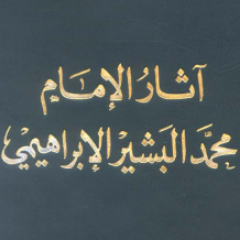 آثَارُ الإِمَامِ
محمَّد البَشِيْر الإبراهيْمي